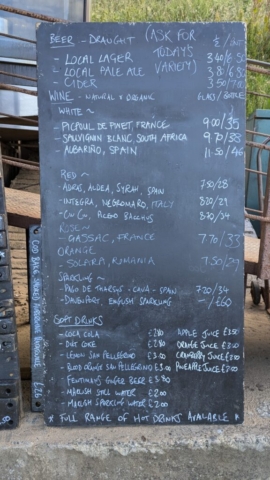 BEER - DRAUGHT (ASK FOR TODAY'S VARIETY) ½/
- LOCAL LAGER 3.40/6.50
- LOCAL PALE ALE 3.80/6.80
- CIDER 3.50/7.00
WINE - NATURAL & ORGANIC GLASS/BOTTLE
WHITE ~
- PICPOUL DE PINET, FRANCE 9.00/35
- SAUVIGNON BLANC, SOUTH AFRICA 9.70/38
- ALBARIÑO, SPAIN 11.50/46
RED ~
- ALDEA, SYRAH, SPAIN 7.50/28
- INTEGRA, NEGROMARO, ITALY /29
- BACCHUS 8.70/34
ROSE ~
- GASSAC, FRANCE 7.70/33
ORANGE
- SOLARA, ROMANIA 7.50/29
SPARKLING ~
- PAGO DE THARSYS - CAVA - SPAIN 7.20/34
- DAVENPORT, ENGLISH SPARKLING - /£60
SOFT DRINKS
- COCA COLA £2.80 APPLE JUICE £3.50
- DIET COKE £2.80 ORANGE JUICE £3.00
- LEMON SAN PELLEGRINO £3.00 CRANBERRY JUICE £3.00
- BLOOD ORANGE SAN PELLEGRINO £3.00 PINEAPPLE JUICE £3.00
- FENTIMANS GINGER BEER £3.80
- MARLISH STILL WATER £2.00
- MARLISH SPARKLING WATER £2.00
* FULL RANGE OF HOT DRINKS AVAILABLE *